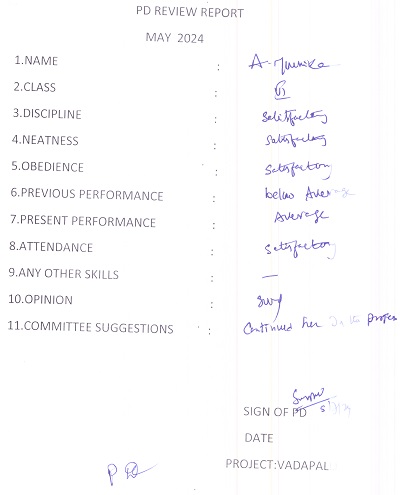 PD REVIEW REPORT
MAY 2024
1.NAME :
2.CLASS :
3.DISCIPLINE : Satisfactory
4.NEATNESS : Satisfactory
5.OBEDIENCE : Satisfactory
6.PREVIOUS PERFORMANCE : below Average
7.PRESENT PERFORMANCE : Average
8.ATTENDANCE : Satisfactory
9.ANY OTHER SKILLS : —
10.OPINION :
11.COMMITTEE SUGGESTIONS : Continued her In the
SIGN OF PD
DATE
PROJECT:VADAPAL
P D